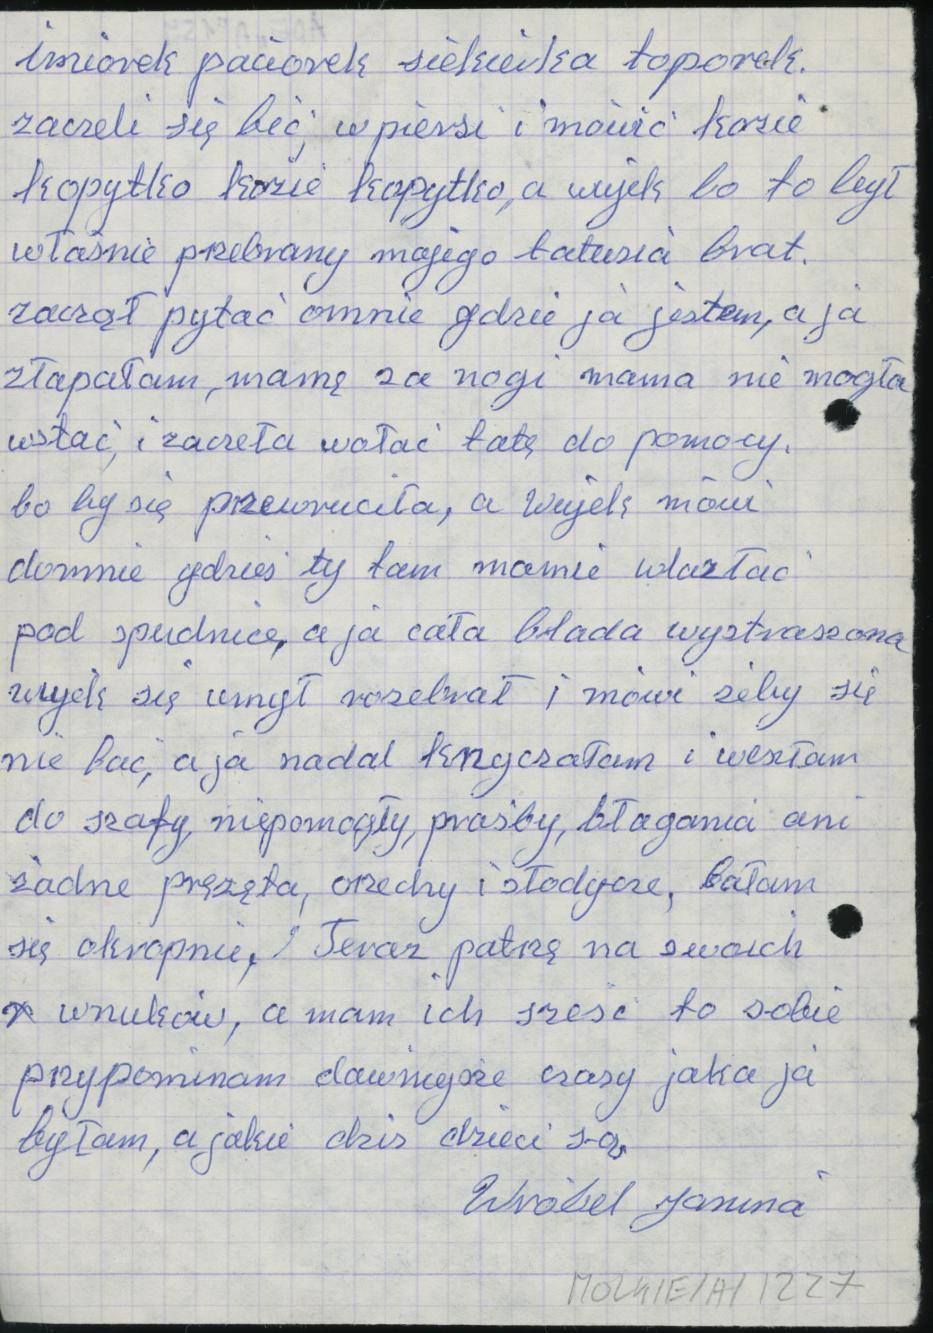 imiorek paciorek siekierka toporek.
zaczeli się bić, w piersi i mówić kozie
kopytko kozie kopytko, a wujek bo to był
właśnie przebrany mojego tatusia brat.
zaczął pytać omnie gdzie ja jestem, a ja
złapałam, mamę za nogi mama nie mogła
wstać, i zaczeła wołać tatę do pomocy.
bo by się przewruciła, a wujek mówi
domnie gdzieś ty tam mamie wlazłać
pod spudnicę, a ja cała blada wystraszona
wujek się umył rozebrał i mówi żeby się
nie bać, a ja nadal krzyczałam i weszłam
do szafy, niepomogły, prośby, błagania ani
żadne pręzęta, orzechy i słodycze, bałam
się okropnie, Teraz patrzę na swoich
wnuków, a mam ich sześć to sobie
przypominam dawniejsze czasy jaka ja
byłam, a jakie dziś dzieci są.
Wróbel Janina
MOLK/E/A/1227